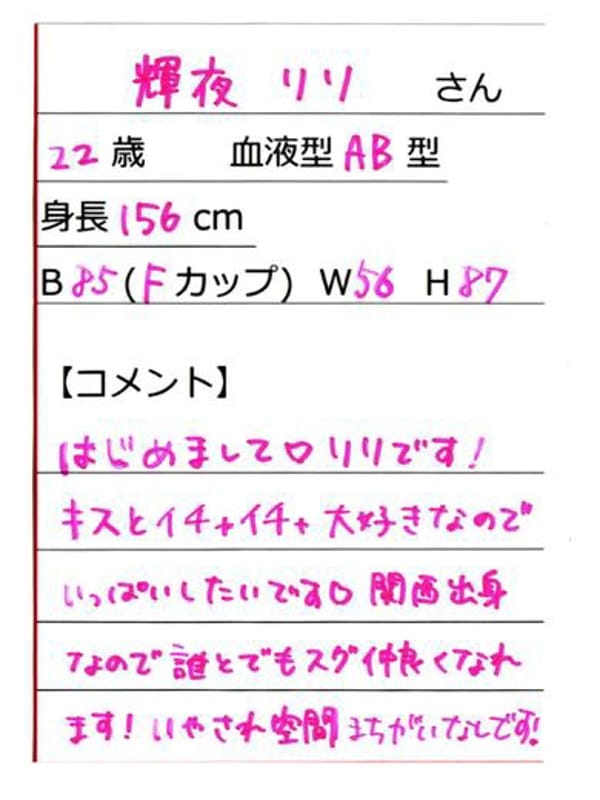 輝夜 リリ さん
22歳 血液型 AB 型
身長 156 cm
B 85 (Fカップ) W56 H 87
【コメント】
はじめまして♡リリです！
キスとイチャイチャ大好きなので
いっぱいしたいです♡ 関西出身
なので誰とでもスグ仲良くなれ
ます！いやされ空間まちがいなしです！